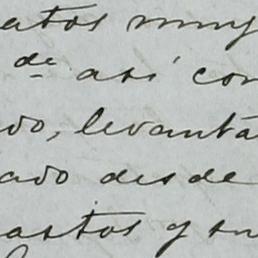 atos muy
de así con
do, levanta
ado desde
astos y su